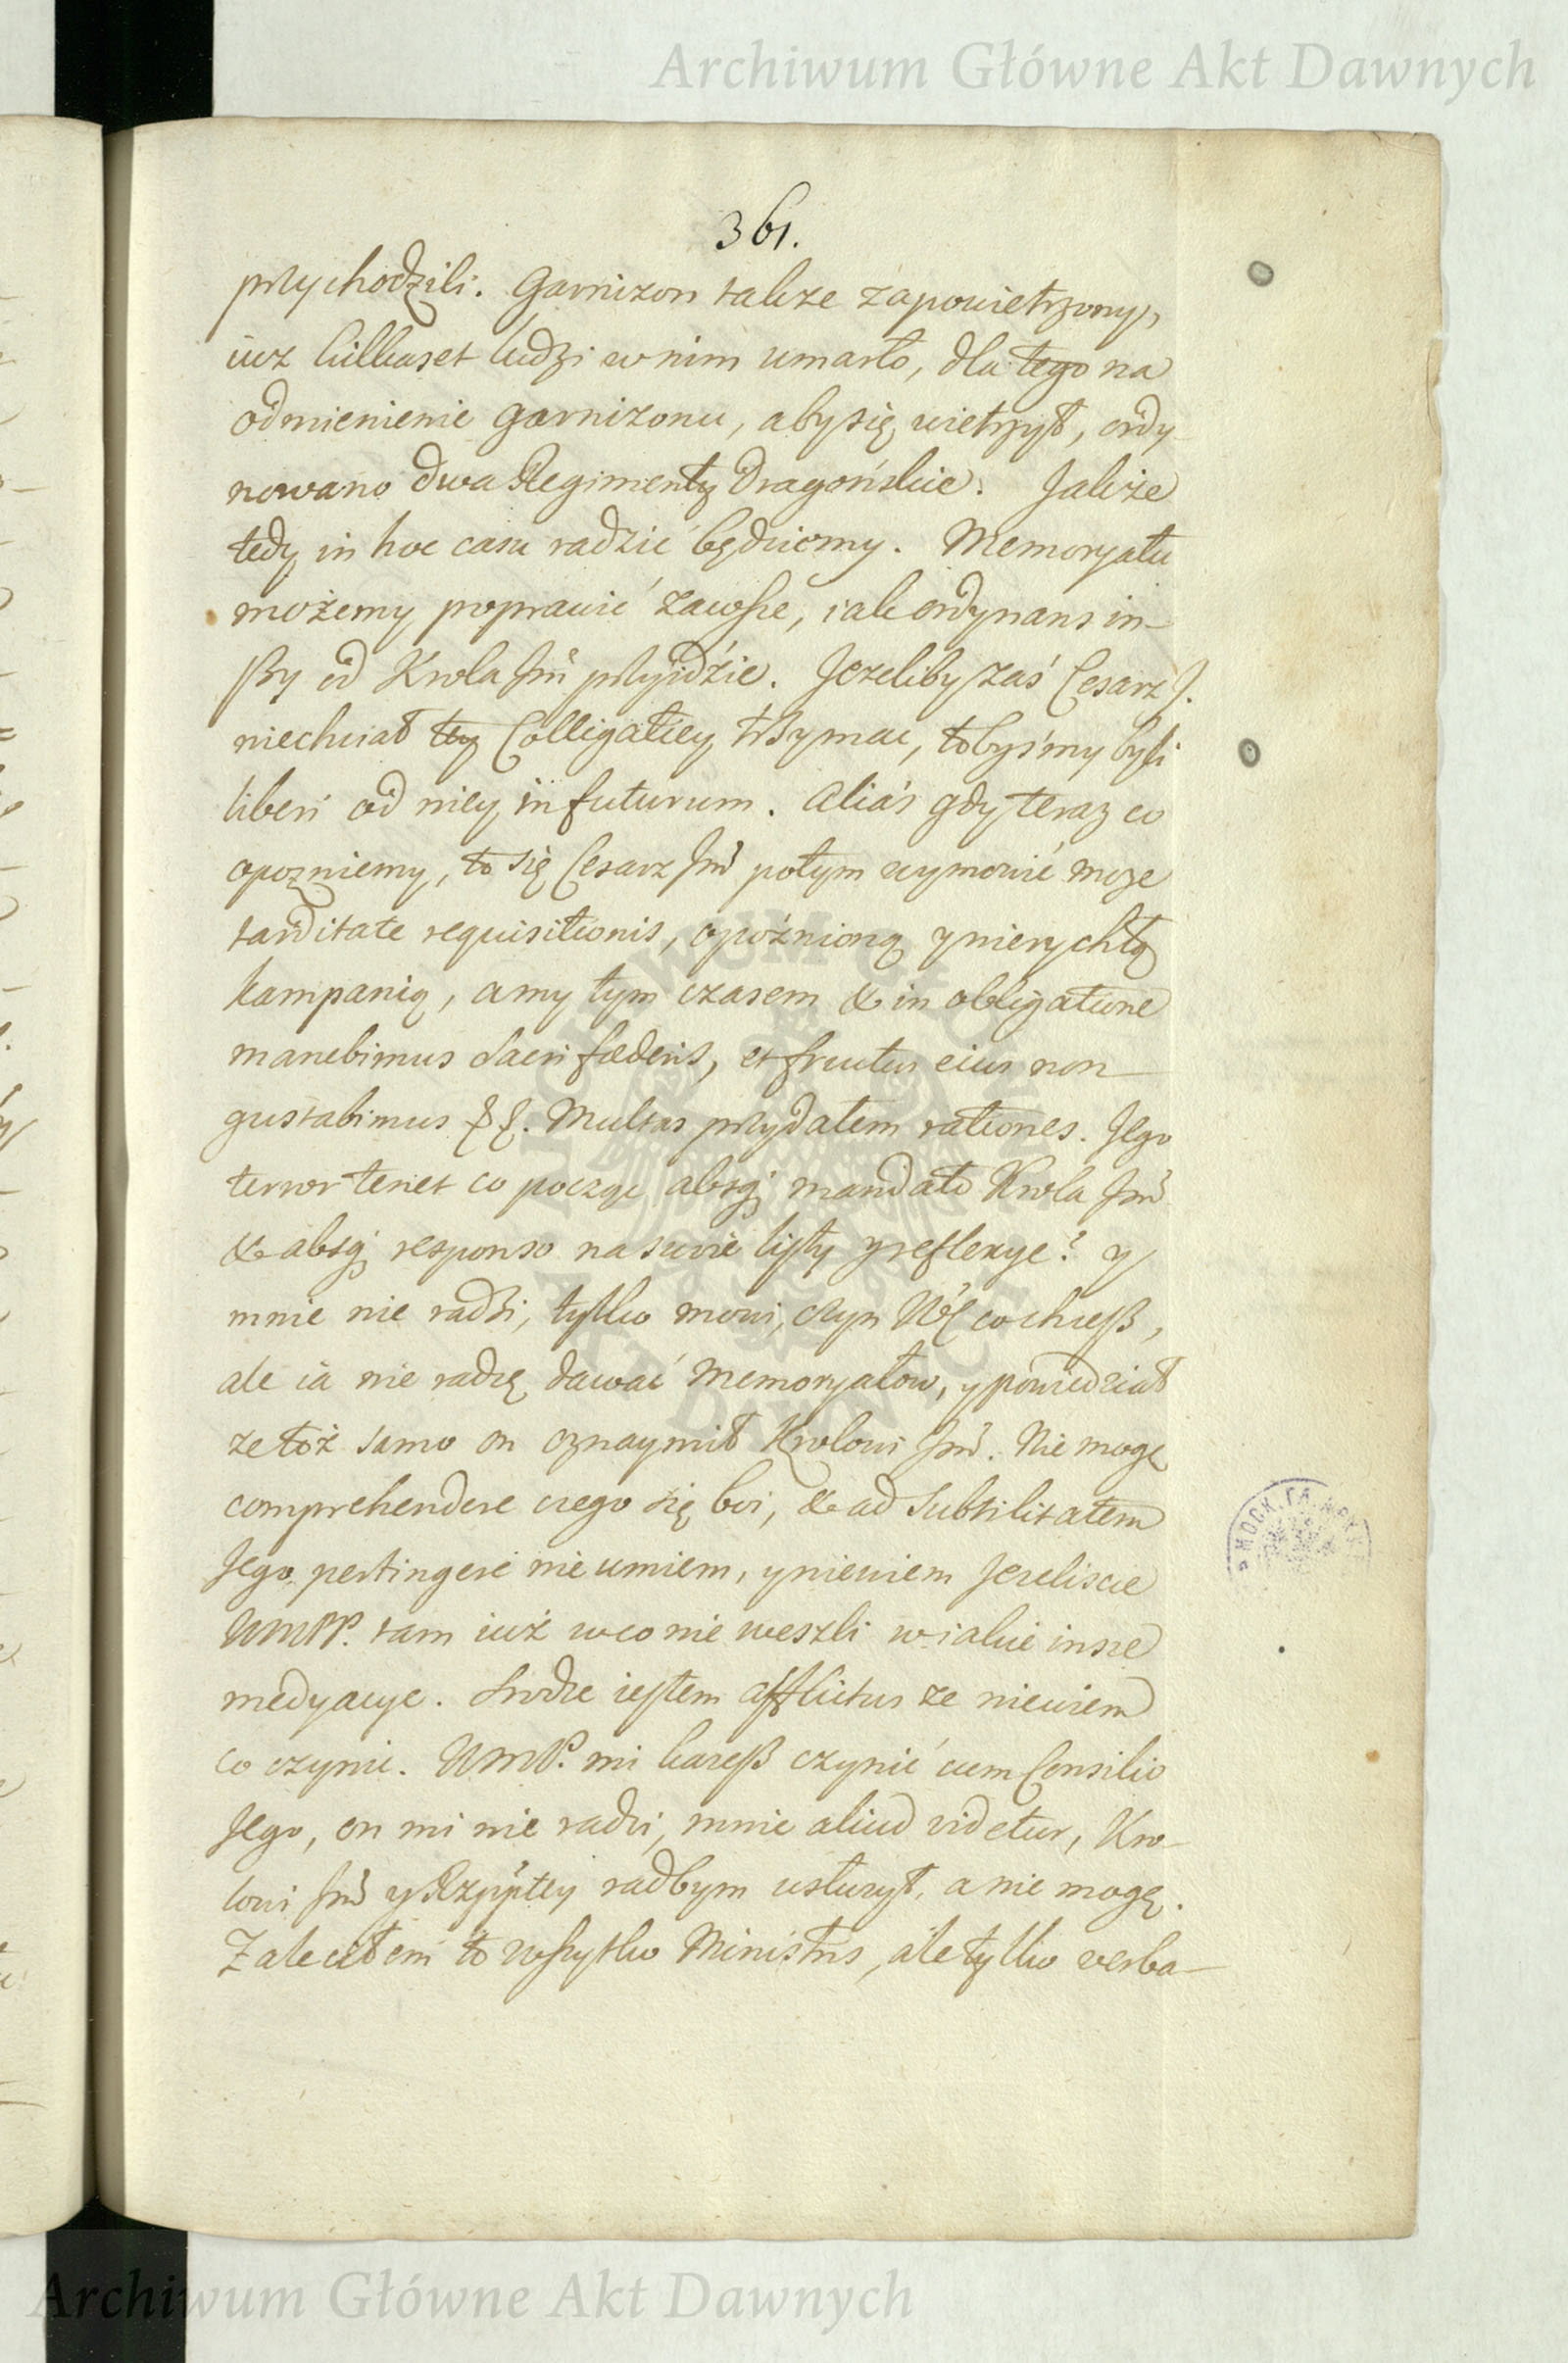 Archiwum Główne Akt Dawnych
361.
przychodzili. Garnizon takze zapowietrzony,
iuz kilkaset ludzi w nim umarło, dla tego na
odmienienie garnizonu, aby się wietrzył, ordy-
nowano dwa Regimenty Dragońskie. Jakże
tedy in hoc casu radzić będziemy. Memoryału
możemy poprawić zawsze, iak ordynans in-
szy od Krola Jmći przyidzie. Jezeliby zaś Cesarz J.
niechciał tey Colligatiey trzymac, tobyśmy byli
liberi od niey in futurum. Aliás gdy teraz co
opozniemy, to się Cesarz Jmć potym wymowić moze
tarditate requisitionis, opóznioną y nierychłą
kampanią, a my tym czasem & in obligatione
manebimus Sacri fœderis, et fructus eius non
gustabimus &&. Multas przydałem rationes. Jego
terror tenet co począc absq mandato Krola Jmć
& absq responso na swoie listy y reflexye? y
mnie nie radzi, tylko mowi, czyn Wć co chcesz,
ale ia nie radzę dawać Memoryałow, y powiedział
ze toż samo on oznaymił Krolowi Jmć. Nie mogę
comprehendere czego się boi, & ad subtilitatem
Jego pertingere nie umiem, y niewiem Jezeliscie
WMPP. tam iuż w co nie weszli w iakie insze
medyacye. Srodze iestem afflictus ze niewiem
co czynic. WMP. mi kazesz czynić cum Consilio
Jego, on mi nie radzi, mnie aliud videtur, Kro-
lowi Jmć y Rzpptey radbym usłuzył, a nie mogę.
Zaleciłem to wszytko Ministris, ale tylko verba-
МОСК. ГЛ. АРХ.
Archiwum Główne Akt Dawnych